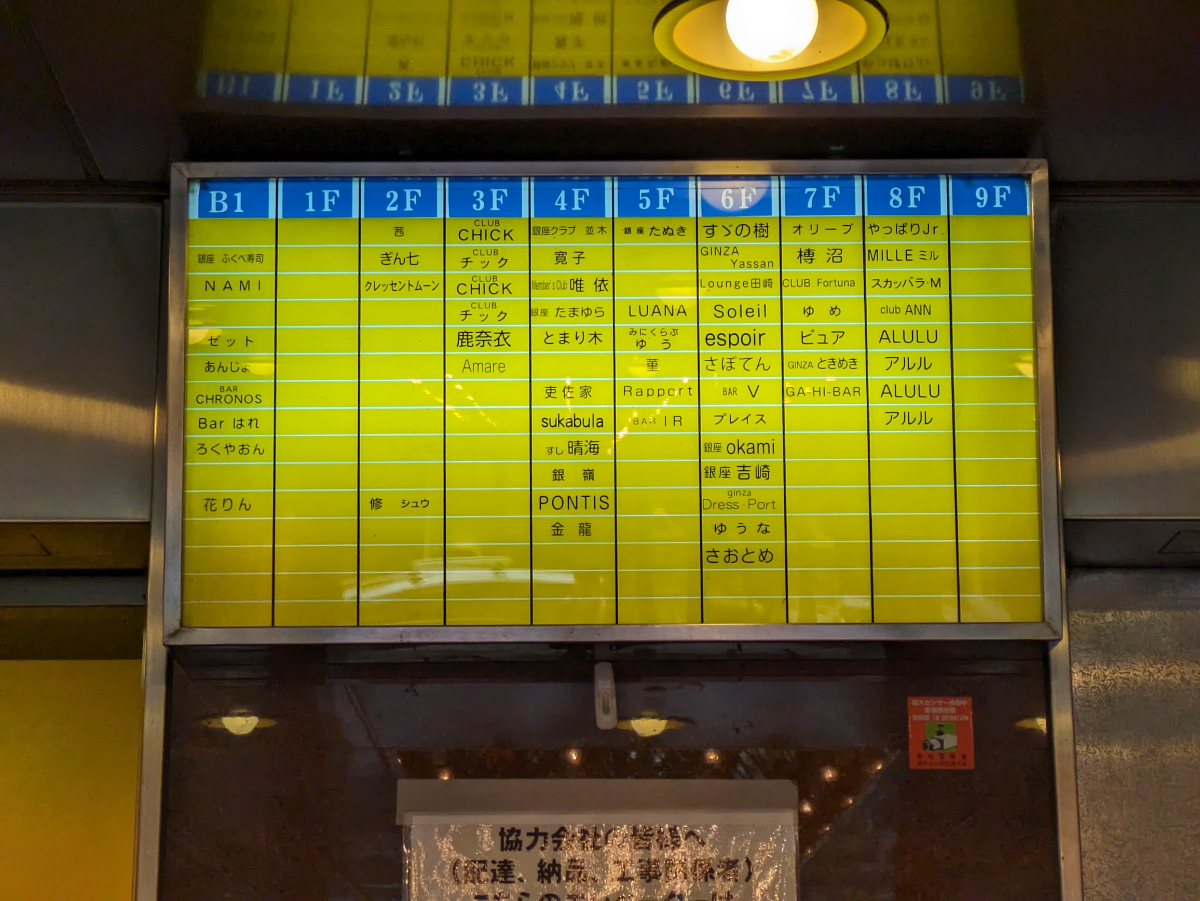 B1 1F 2F 3F 4F 5F 6F 7F 8F 9F
茜 CLUB CHICK 銀座クラブ 並木 銀座 たぬき すゞの樹 オリーブ やっぱりJr.
銀座 ふくべ寿司 ぎん七 CLUB チック 寛子 GINZA Yassan 榑沼 MILLE ミル
NAMI クレッセントムーン CLUB CHICK Member's Club 唯依 Lounge田崎 CLUB Fortuna スカッパラ・M
CLUB チック 銀座 たまゆら LUANA Soleil ゆめ club ANN
ゼット 鹿奈衣 とまり木 みにくらぶ ゆう espoir ピュア ALULU
あんじょ Amare 菫 さぼてん GINZA ときめき アルル
BAR CHRONOS 吏佐家 Rapport BAR V GA-HI-BAR ALULU
Bar はれ sukabula BAR IR プレイス アルル
ろくやおん すし 晴海 銀座 okami
銀嶺 銀座 吉崎
花りん 修 シュウ PONTIS ginza Dress Port
金龍 ゆうな
さおとめ
協力会社の皆様へ
(配達、納品、工事関係者)